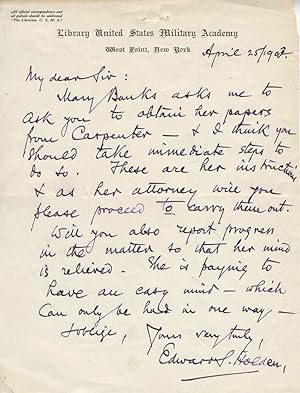 All official correspondence and
all parcels should be addressed
"The Librarian, U. S. M. A."
Library United States Military Academy
West Point, New York
April 25/1908.
My dear Sir:
Mary Banks asks me to
ask you to obtain her papers
from Carpenter — & I think you
should take immediate steps to
do so. These are her instructions
& as her attorney will you
please proceed to carry them out.
Will you also report progress
in the matter so that her mind
is relieved. She is paying to
have an easy mind — which
can only be had in one way —
& oblige,
Yours very truly,
Edward S. Holden,